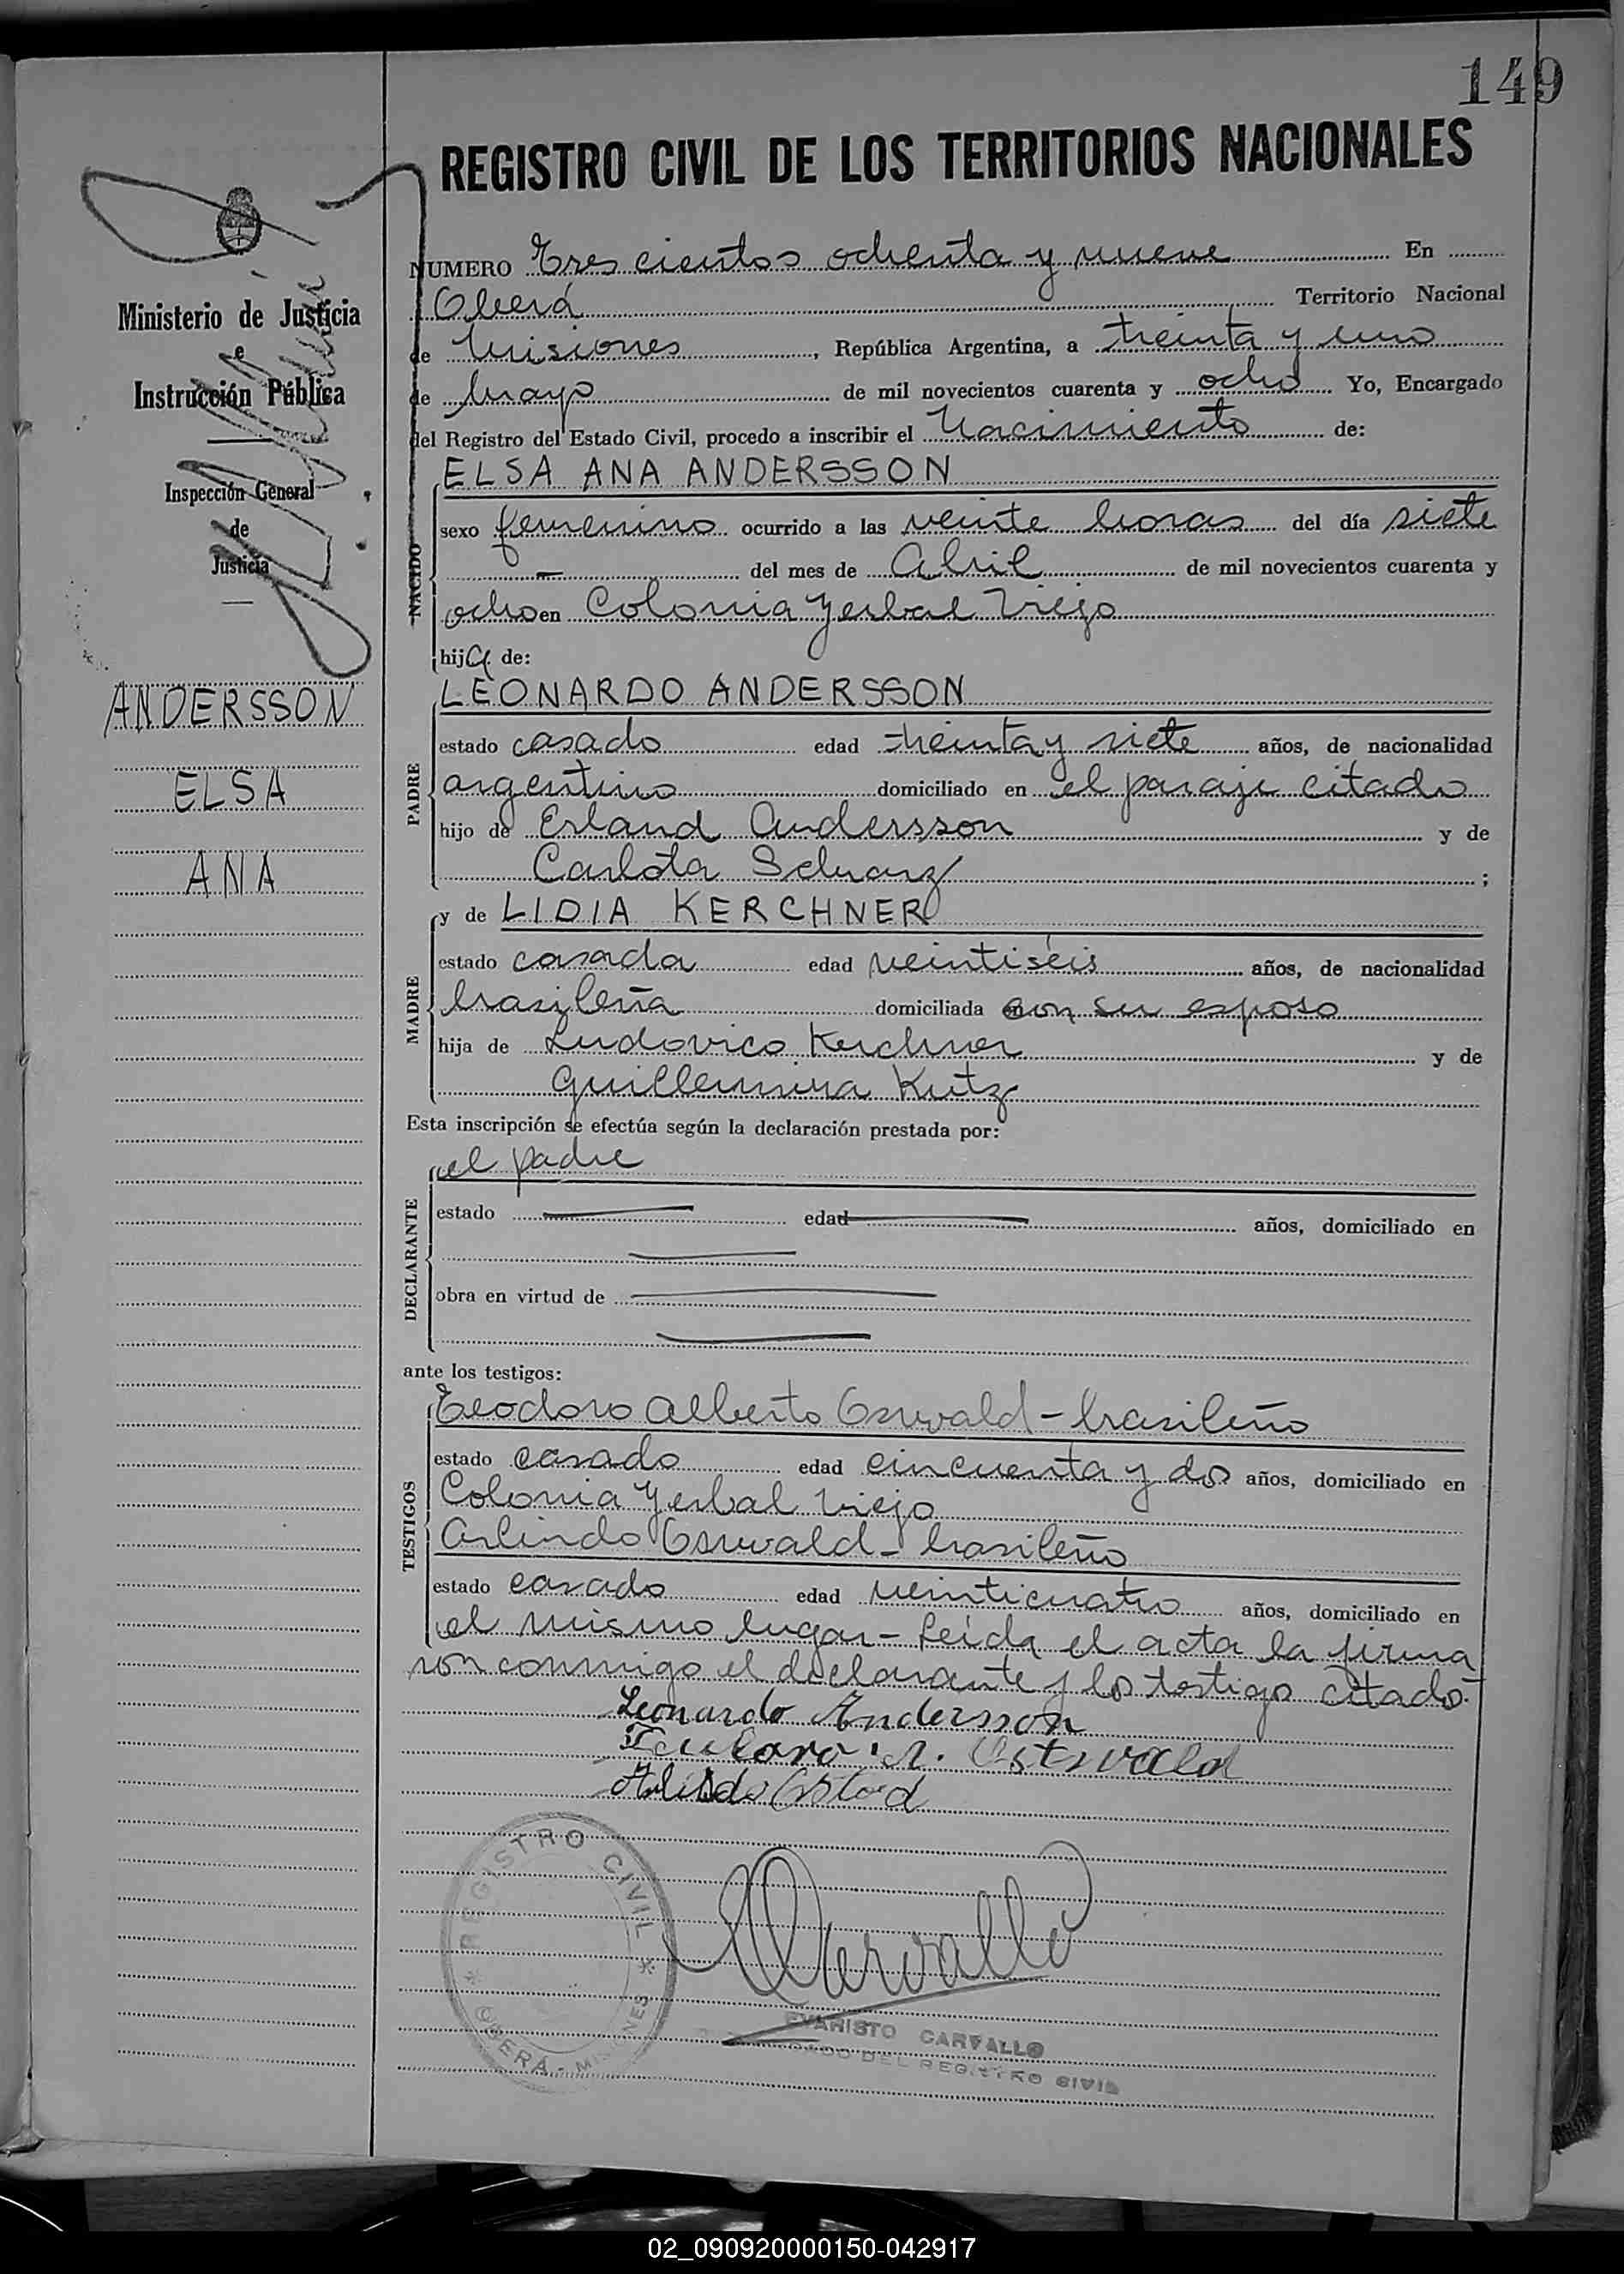 149
REGISTRO CIVIL DE LOS TERRITORIOS NACIONALES
Ministerio de Justicia
e
Instrucción Pública
Inspección General
de
Justicia
ANDERSSON
ELSA
ANA
NUMERO Tres cientos ochenta y nueve En
Oberá Territorio Nacional
de Misiones, República Argentina, a treinta y uno
de Mayo de mil novecientos cuarenta y ocho Yo, Encargado
del Registro del Estado Civil, procedo a inscribir el Nacimiento de:
NACIDO
ELSA ANA ANDERSSON
sexo femenino ocurrido a las veinte horas del día siete
— del mes de Abril de mil novecientos cuarenta y
ocho en Colonia Yerbal Viejo
hija de:
PADRE
LEONARDO ANDERSSON
estado casado edad treinta y siete años, de nacionalidad
argentino domiciliado en el paraje citado
hijo de Erland Andersson y de
Carlota Schwarz ;
MADRE
y de LIDIA KERCHNER
estado casada edad veintiséis años, de nacionalidad
brasileña domiciliada con su esposo
hija de Ludovico Kerchner y de
Guillermina Kutz
Esta inscripción se efectúa según la declaración prestada por:
DECLARANTE
el padre
estado — edad — años, domiciliado en
—
obra en virtud de —
—
ante los testigos:
TESTIGOS
Teodoro Alberto Oswald - brasileño
estado casado edad cincuenta y dos años, domiciliado en
Colonia Yerbal Viejo
Arlindo Oswald - brasileño
estado casado edad veinticuatro años, domiciliado en
el mismo lugar - Leída el acta la firma
ron conmigo el declarante y los testigos citados.-
Leonardo Andersson
A. Ostwald
REGISTRO CIVIL
OBERÁ - MISIONES
Carvallo
EVARISTO CARVALLO
DEL REGISTRO CIVIL
02_090920000150-042917